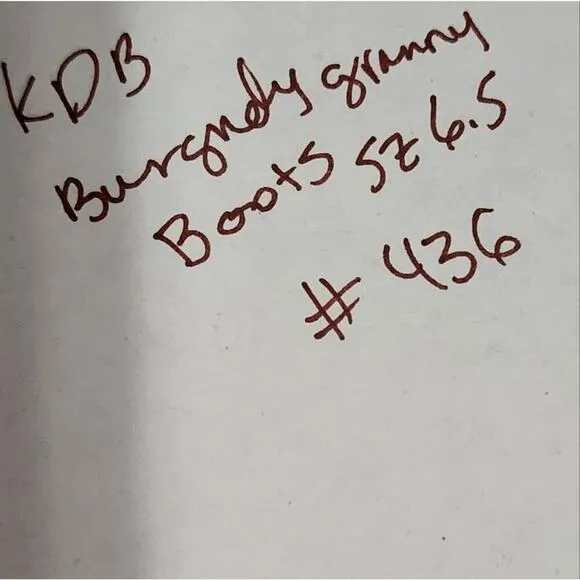 KDB
Burgndy granny
Boots sz 6.5
# 436